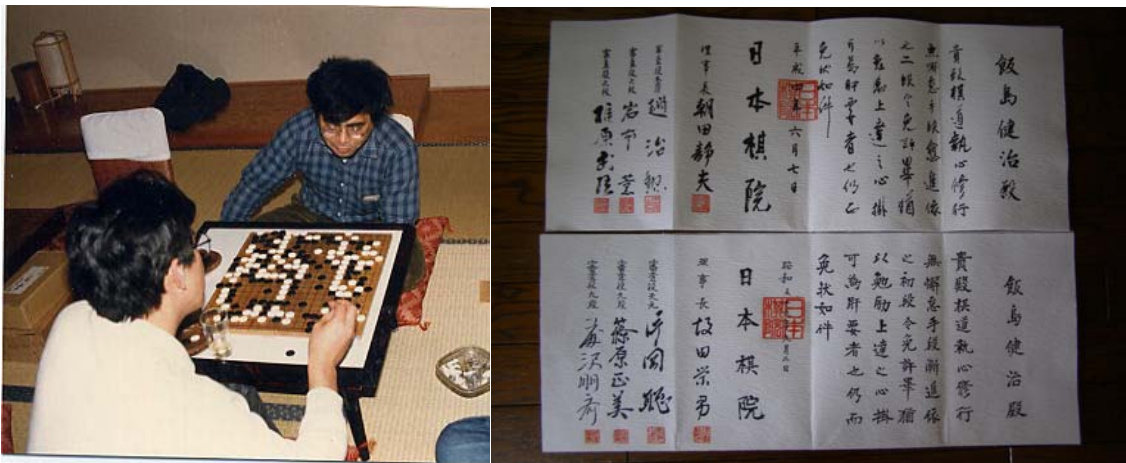 飯島健治殿
貴殿棋道執心修行
無懈怠手段愈進依
之二段令免許畢猶
以勉励上達之心掛
可為肝要者也仍而
免状如件
平成四年六月七日
日本棋院
理事長 朝田静夫
審査役 趙治勲
審査役九段 岩本薫
審査役九段 梶原武雄
飯島健治殿
貴殿棋道執心修行
無懈怠手段漸進依
之初段令免許畢猶
以勉励上達之心掛
可為肝要者也仍而
免状如件
昭和
日本棋院
理事長
審査役天元 片岡聡
審査役九段 藤原正美
審査役九段